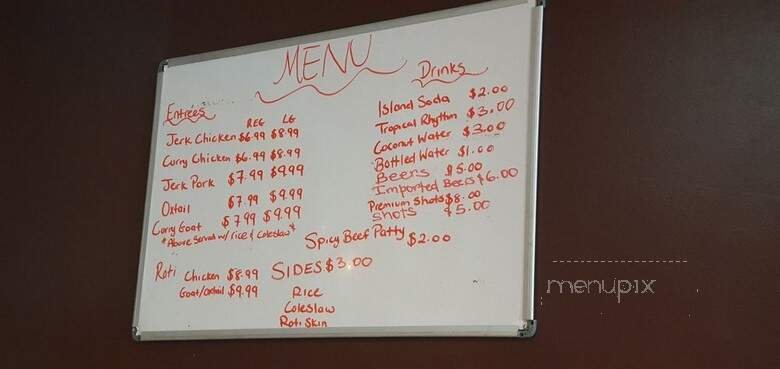 MENU
Entrées
REG LG
Jerk Chicken $6.99 $8.99
Curry Chicken $6.99 $8.99
Jerk Pork $7.99 $9.99
Oxtail $7.99 $9.99
Curry Goat $7.99 $9.99
*Above Served w/ rice & Coleslaw*
Roti Chicken $8.99
Goat/Oxtail $9.99
Drinks
Island Soda $2.00
Tropical Rhythm $3.00
Coconut Water $3.00
Bottled Water $1.00
Beers $5.00
Imported Beers $6.00
Premium Shots $8.00
Shots $5.00
Spicy Beef Patty $2.00
SIDES $3.00
Rice
Coleslaw
Roti Skin
menupix